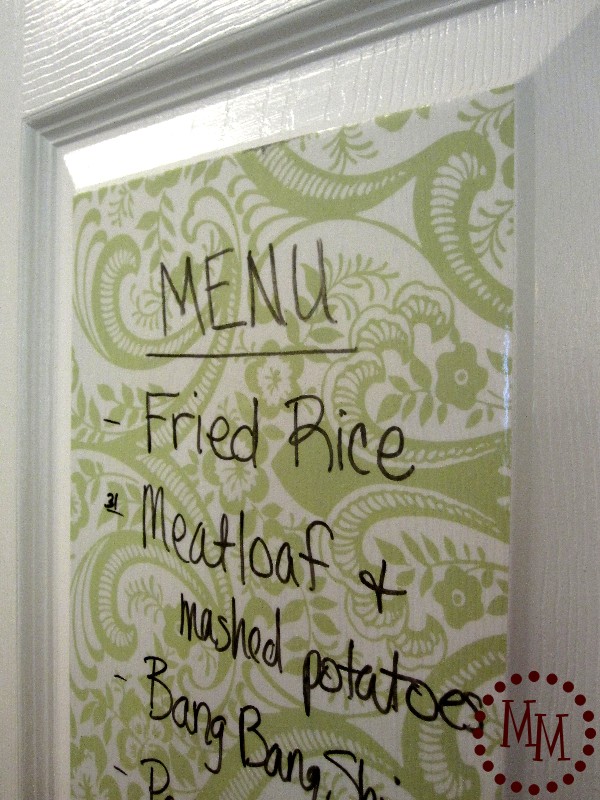 MENU
- Fried Rice
31 Meatloaf &
mashed potatoes
- Bang Bang
MM